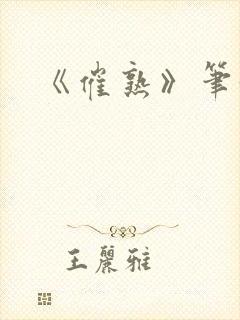 《催熟》筆
王麗雅